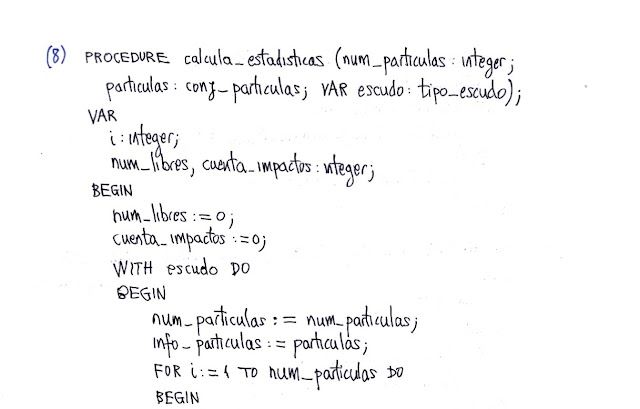 (8) PROCEDURE calcula_estadisticas (num_particulas : integer;
particulas : conj_particulas; VAR escudo : tipo_escudo);
VAR
i : integer;
num_libres, cuenta_impactos : integer;
BEGIN
num_libres := 0;
cuenta_impactos := 0;
WITH escudo DO
BEGIN
num_particulas := num_particulas;
info_particulas := particulas;
FOR i := 1 TO num_particulas DO
BEGIN